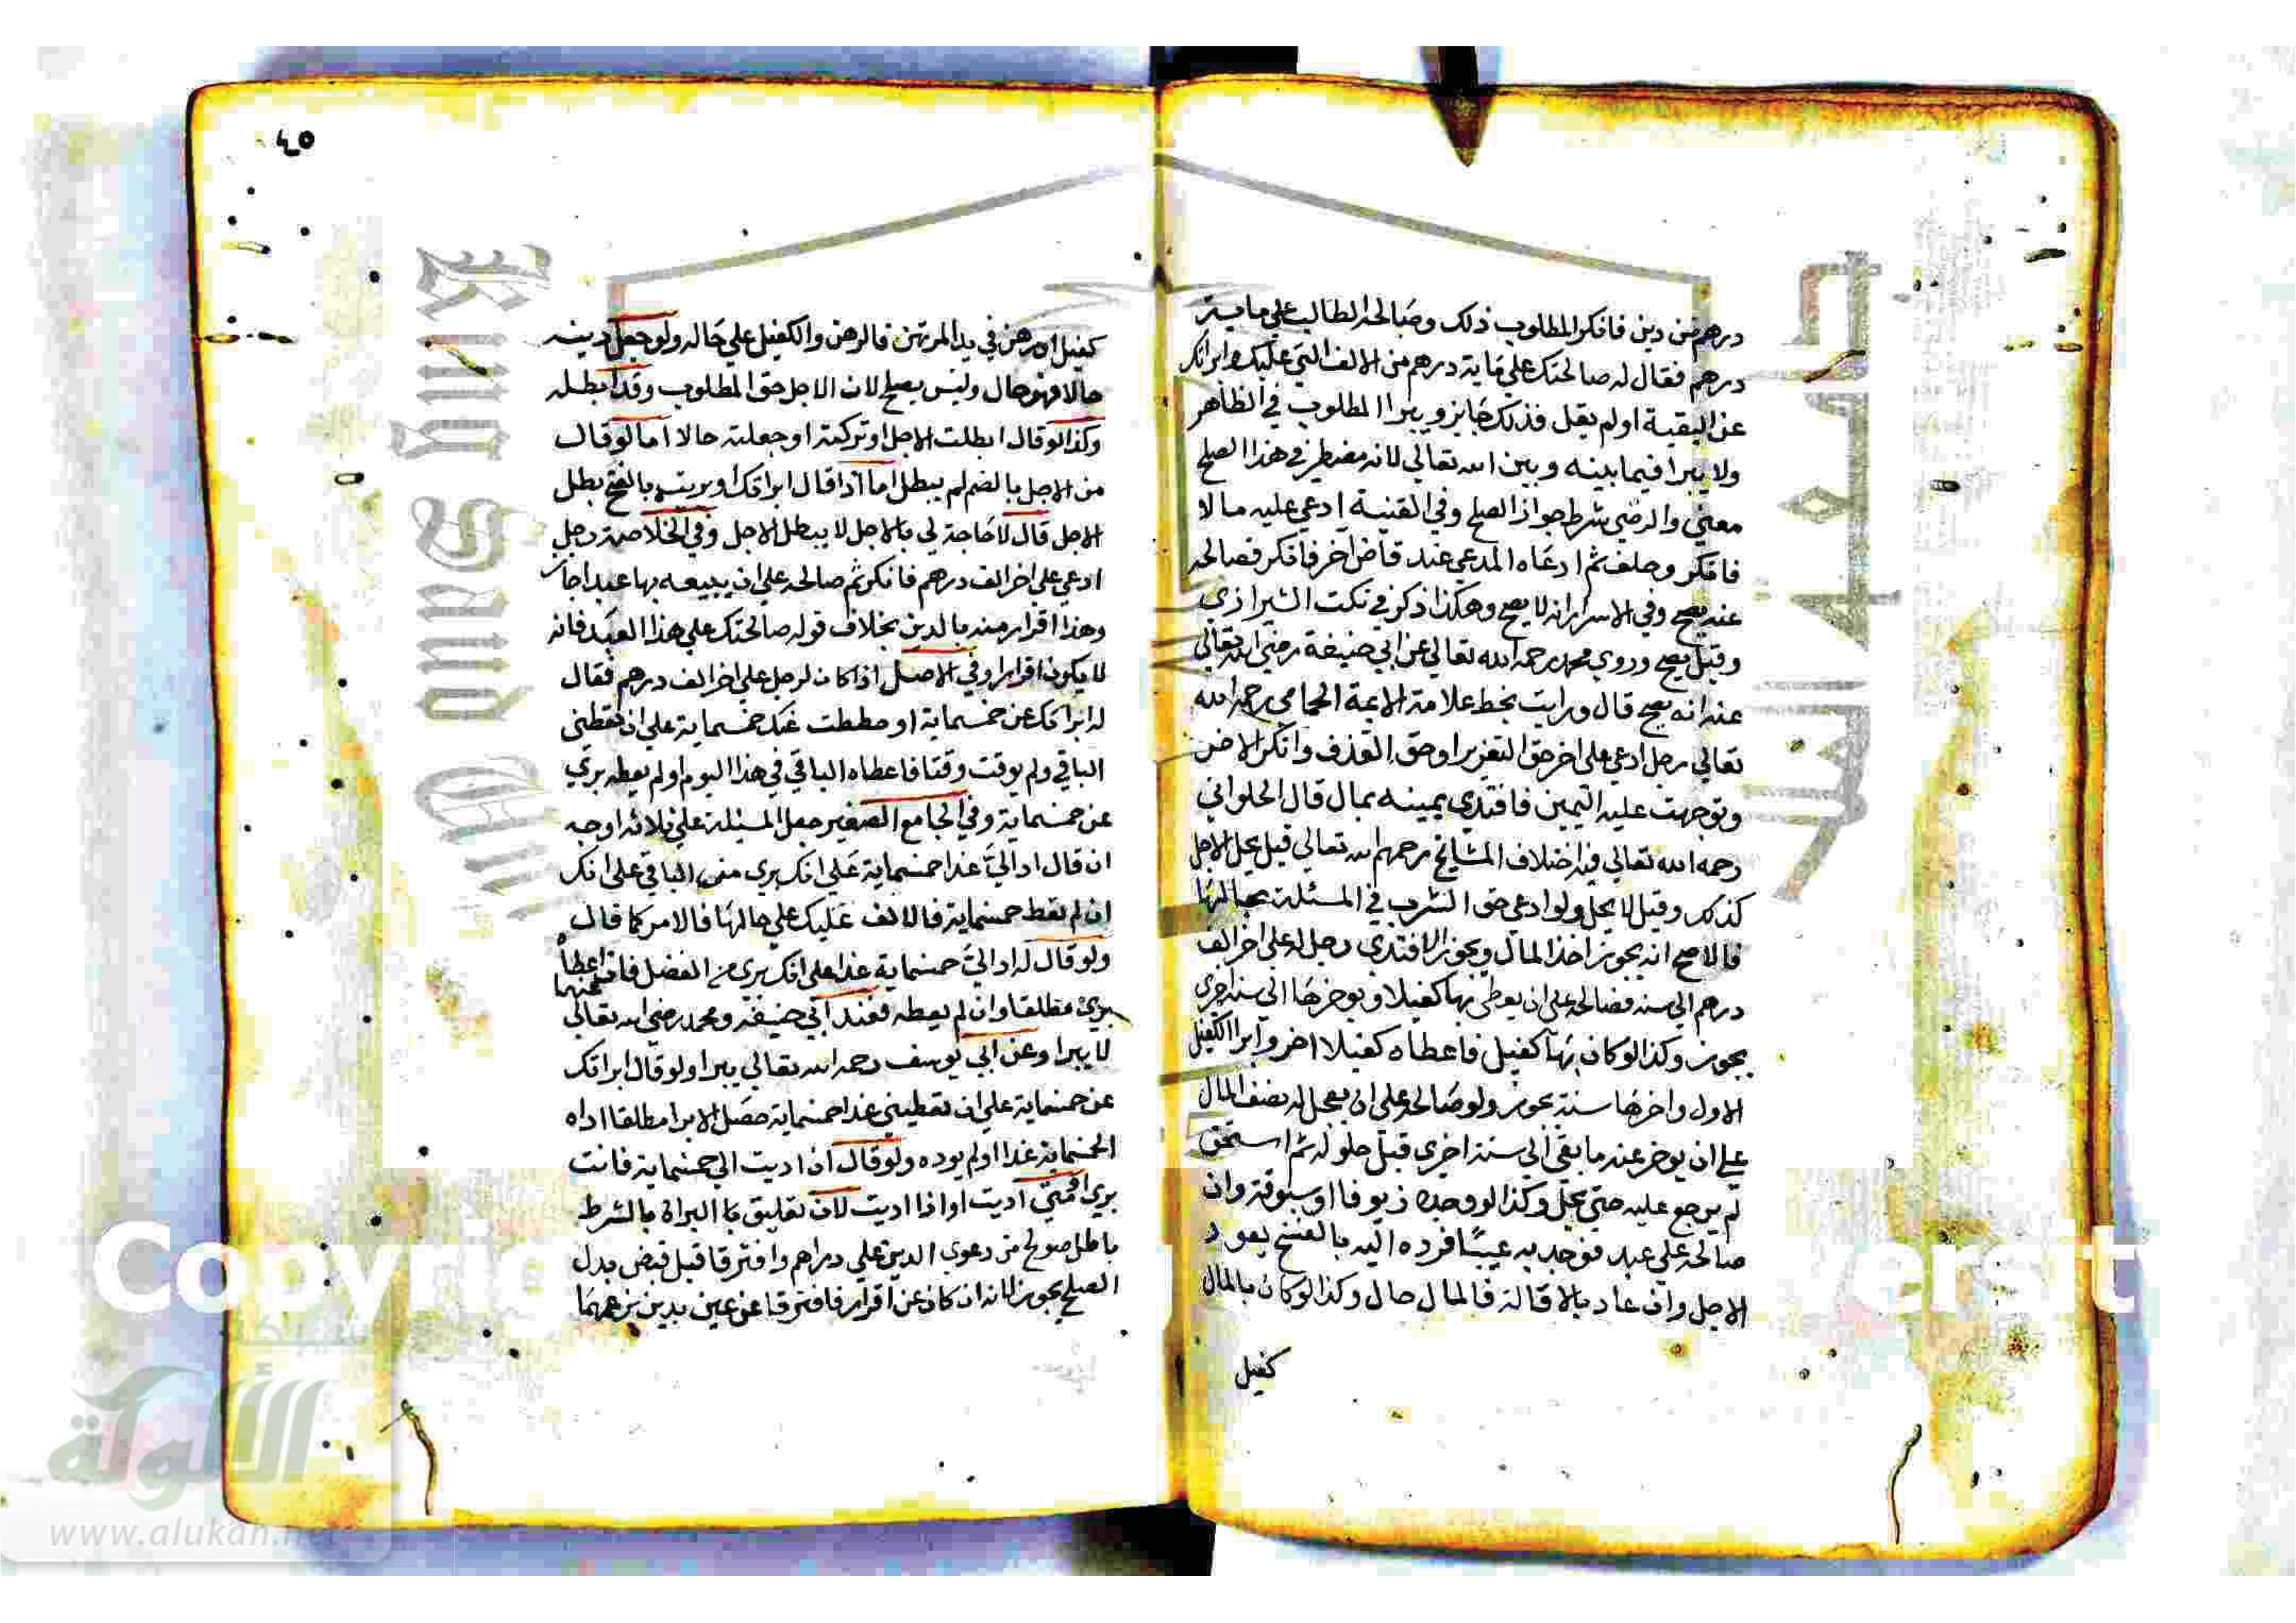 درهم من دين فانكر المطلوب ذلك وصالحه الطالب علي ماية
درهم فقال له صالحتك علي ماية درهم من الالف التي عليك وابراتك
عن البقية او لم يقل فذلك جايز ويبرا المطلوب في الظاهر
ولا يبرا فيما بينه وبين الله تعالي لانه مضطر في هذا الصلح
معني والرضي شرط جواز الصلح وفي القنية ادعي عليه مالا
فانكر وحلف ثم ادعاه المدعي عند قاض اخر فانكر فصالحه
عنه يصح وفي الاسرار انه لا يصح وهكذا ذكر في نكت الشيرازي
وقيل يصح وروي محمد رحمه الله تعالي عن ابي حنيفة رضي الله تعالي
عنه انه يصح قال ورايت بخط علامة الايمة الحمامي رحمه الله
تعالي رجل ادعي علي اخر حق التعزير او حق القذف وانكر الاخر
وتوجهت عليه اليمين فافتدي يمينه بمال قال الحلواني
رحمه الله تعالي فيه اختلاف المشايخ رحمهم الله تعالي قيل يحل الاجل
كذلك وقيل لا يحل ولو ادعي حق الشرب في المسئلة بحالها
فالاصح انه يجوز اخذ المال ويجوز الافتدي رجل له علي اخر الف
درهم الي سنة فصالحه علي ان يعطي بها كفيلا ويوخرها الي سنة اخري
يجوز وكذا لو كان بها كفيل فاعطاه كفيلا اخر وابرا الكفيل
الاول واخرها سنة يجوز ولو صالحه علي ان يعجل له نصف المال
علي ان يوخر عنه ما بقي الي سنة اخري قبل حلوله ثم استحق
لم يرجع عليه حتي يحل وكذا لو وجده زيوفا او ستوقة وان
صالحه علي عبد فوجد به عيبا فرده اليه بالفسخ يعود
الاجل وان عاد بالاقالة فالمال حال وكذا لو كان بالمال
كفيل
٤٥
كفيل او رهن في يد المرتهن فالرهن والكفيل علي حاله ولو جعل دينه
حالا فهو حال وليس يصلح لان الاجل حق المطلوب وقد ابطله
وكذا لو قال ابطلت الاجل او تركته او جعلته حالا اما لو قال
من الاجل بالضم لم يبطل اما اذا قال ابراتك او بريت بالفتح بطل
الاجل قال لا حاجة لي بالاجل لا يبطل الاجل وفي الخلاصة رجل
ادعي علي اخر الف درهم فانكر ثم صالحه علي ان يبيعه بها عبدا جاز
وهذا اقرار منه بالدين بخلاف قوله صالحتك علي هذا العبد فانه
لا يكون اقرارا وفي الاصل اذا كان لرجل علي اخر الف درهم فقال
له ابراتك عن خمسماية او حططت عنك خمسماية علي ان تعطني
الباقي ولم يوقت وقتا فاعطاه الباقي في هذا اليوم او لم يعطه بري
عن خمسماية وفي الجامع الصغير جعل المسئلة علي ثلاثه اوجه
ان قال اد الي غدا خمسماية علي انك بري من الباقي علي انك
ان لم تعط خمسماية فالالف عليك علي حالها فالامر كما قال
ولو قال له اد الي خمسماية غدا علي انك بري من الفضل فان اعطاه
بري مطلقا وان لم يعطه فعند ابي حنيفه ومحمد رضي الله تعالي عنهما
لا يبرا وعن ابي يوسف رحمه الله تعالي يبرا ولو قال ابراتك
عن خمسماية علي ان تعطيني غدا خمسماية حصل الابرا مطلقا اداه
الخمسماية غدا او لم يوده ولو قال ان اديت الي خمسماية فانت
بري او متي اديت او اذا اديت لان تعليق بالبراة بالشرط
باطل صولح من دعوي الدين علي دراهم وافترقا قبل قبض بدل
الصلح يجوز لانه ان كان عن اقرار فافترقا عن عين بدين بزعمهما
Copyright
ersit
شبكة
الألوكة
www.alukah.net